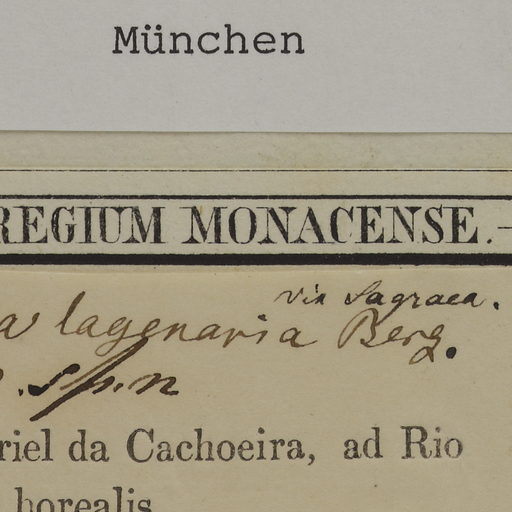 München
REGIUM MONACENSE.—
vix Sagraea.
a lagenaria Berg.
. sp. n
riel da Cachoeira, ad Rio
borealis